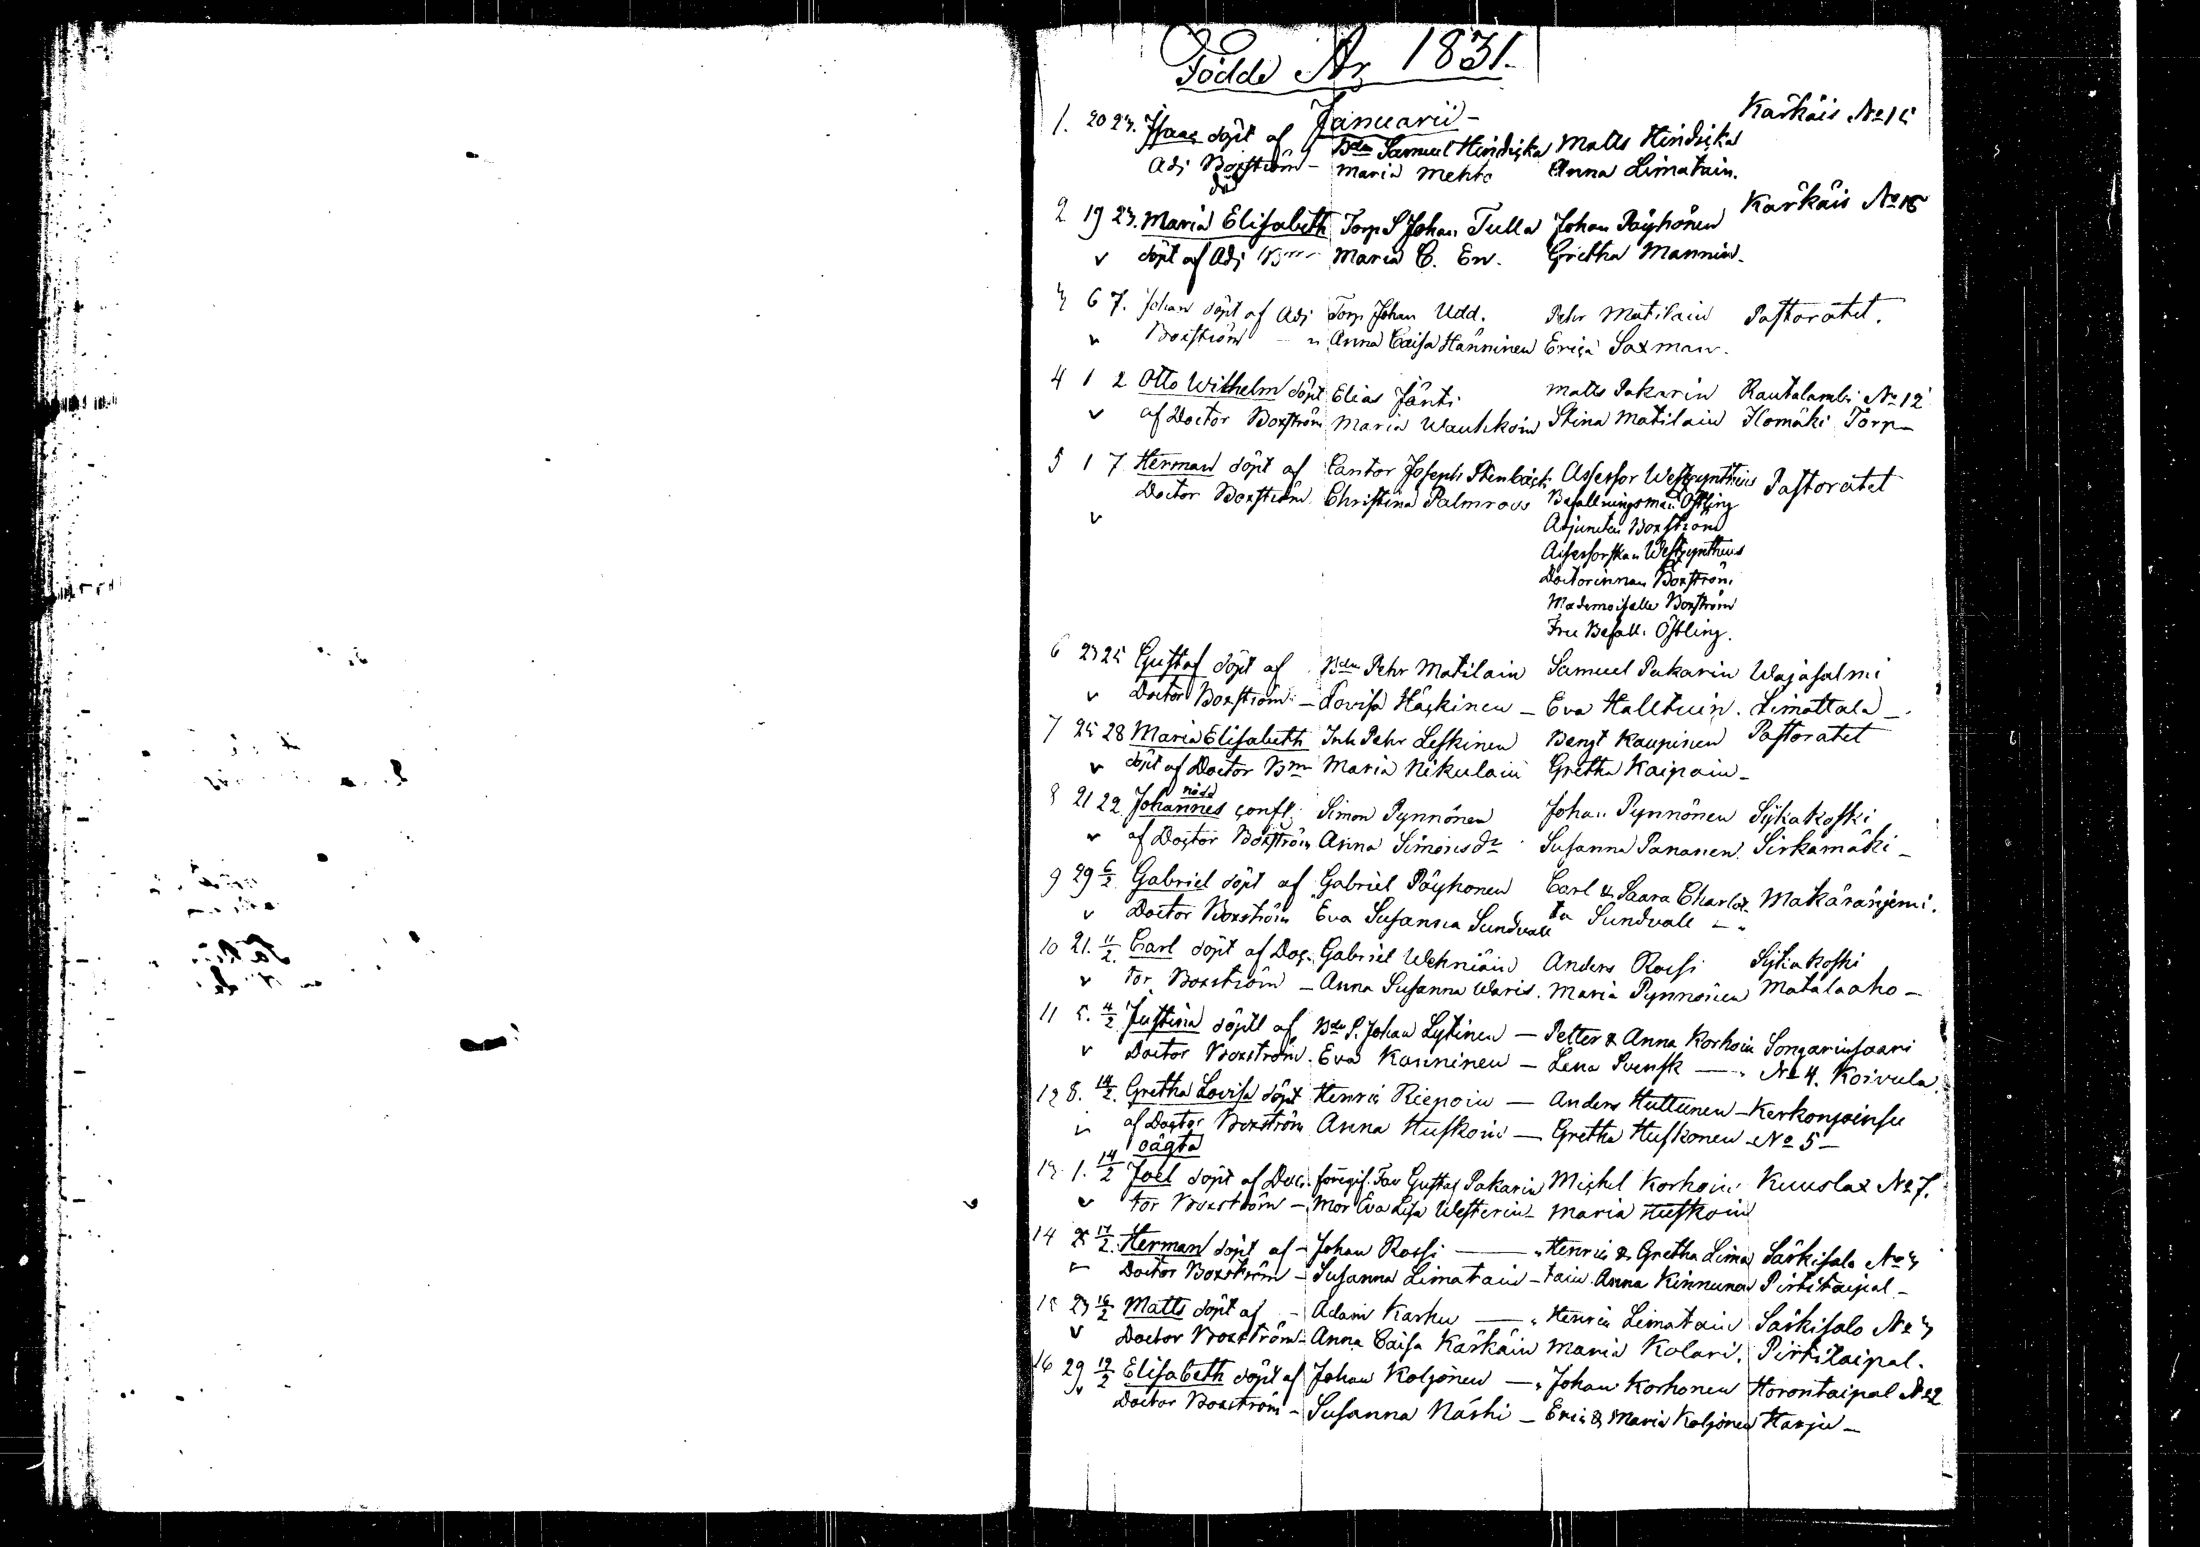 Födde År 1831.
Januarii -
1. 20 23. Isaac döpt af Bdn Samuel Hindricka Matts Hindricka Karkäis No 15
Adj Boxström - Maria Mehto Anna Limatain.
död
2 19 23. Maria Elisabeth Torp S Johan Tulla Johan Pöyhönen Karkäis No 15
v döpt af Adj Bmm Maria C. En. Gretha Mannin.
3 6 7. Johan döpt af Adj Torp Johan Udd. Pehr Matilain Pastoratet.
v Boxström - " Anna Caisa Hänninen Erica Saxman.
4 1 2 Otto Wilhelm döpt Elias Jänti Matts Pakarin Rautalambi No 12
v af Doctor Boxström Maria Wauhkoin Stina Matilain Ilomäki Torp -
5 1 7 Herman döpt af Cantor Joseph Stenbäck Assessor Westzynthius Pastoratet
Doctor Boxström Christina Palmroos Befallningsman Östling
v Adjuncten Boxström
Assessorskan Westzynthius
Doctorinnan Boxström
Mademoiselle Boxström
Fru Befall. Östling.
6 23 25 Gustaf döpt af Bdn Pehr Matilain Samuel Pakarin Wajasalmi
v Doctor Boxström - Lovisa Häckinen - Eva Halltuin. Limattala -
7 25 28 Maria Elisabeth Inh Pehr Leskinen Bengt Kaupinen Pastoratet
v döpt af Doctor Bm Maria Nikulain Gretha Kaipain -
nöd
8 21 22 Johannes conf. Simon Pynnönen Johan Pynnönen Sijkakoski
v af Doctor Boxström Anna Simonsdr Susanna Pananen. Sirkamäki -
9 29 6/2 Gabriel döpt af Gabriel Pöyhonen Carl & Saara Charlot- Makäräniemi.
v Doctor Boxström Eva Susanna Sundvall ta Sundvall -
10 21. 11/2. Carl döpt af Doc- Gabriel Wehniäin Anders Rossi Sijkakoski
v tor Boxström - Anna Susanna Waris. Maria Pynnönen Matalaaho -
11 5. 4/2. Justina döpt af Bdn S. Johan Lytinen - Petter & Anna Korhoin Songarinsaari
v Doctor Boxström. Eva Kanninen - Lena Svensk - No 4. Koivula.
12 8. 14/2. Gretha Lovisa döpt Henric Riepoin - Anders Huttunen - Kerkonjoinsu
v af Doctor Boxström Anna Huskoin - Gretha Huskonen - No 5 -
oägta
13 1. 14/2 Joel döpt af Doc- föregif. Far Gustaf Pakarin Michel Korhoin Kuuslax No 7.
v tor Boxström - Mor Eva Lisa Westerin - Maria Huskoin
14 17/2. Herman döpt af - Johan Rossi - Henric & Gretha Lima Särkisalo No 3
v Doctor Boxström - Susanna Limatain - tain. Anna Kinnunen Pirttitaipal -
15 23 16/2 Matts döpt af - Adam Karhu - Henric Limatain Särkisalo No 3
v Doctor Boxström - Anna Caisa Kärkäin Maria Kolari. Pirtitaipal.
16 29 19/2 Elisabeth döpt af Johan Koljonen - Johan Korhonen Horontaipal No 2
v Doctor Boxström - Susanna Närhi - Eric & Maria Koljonen Harju -